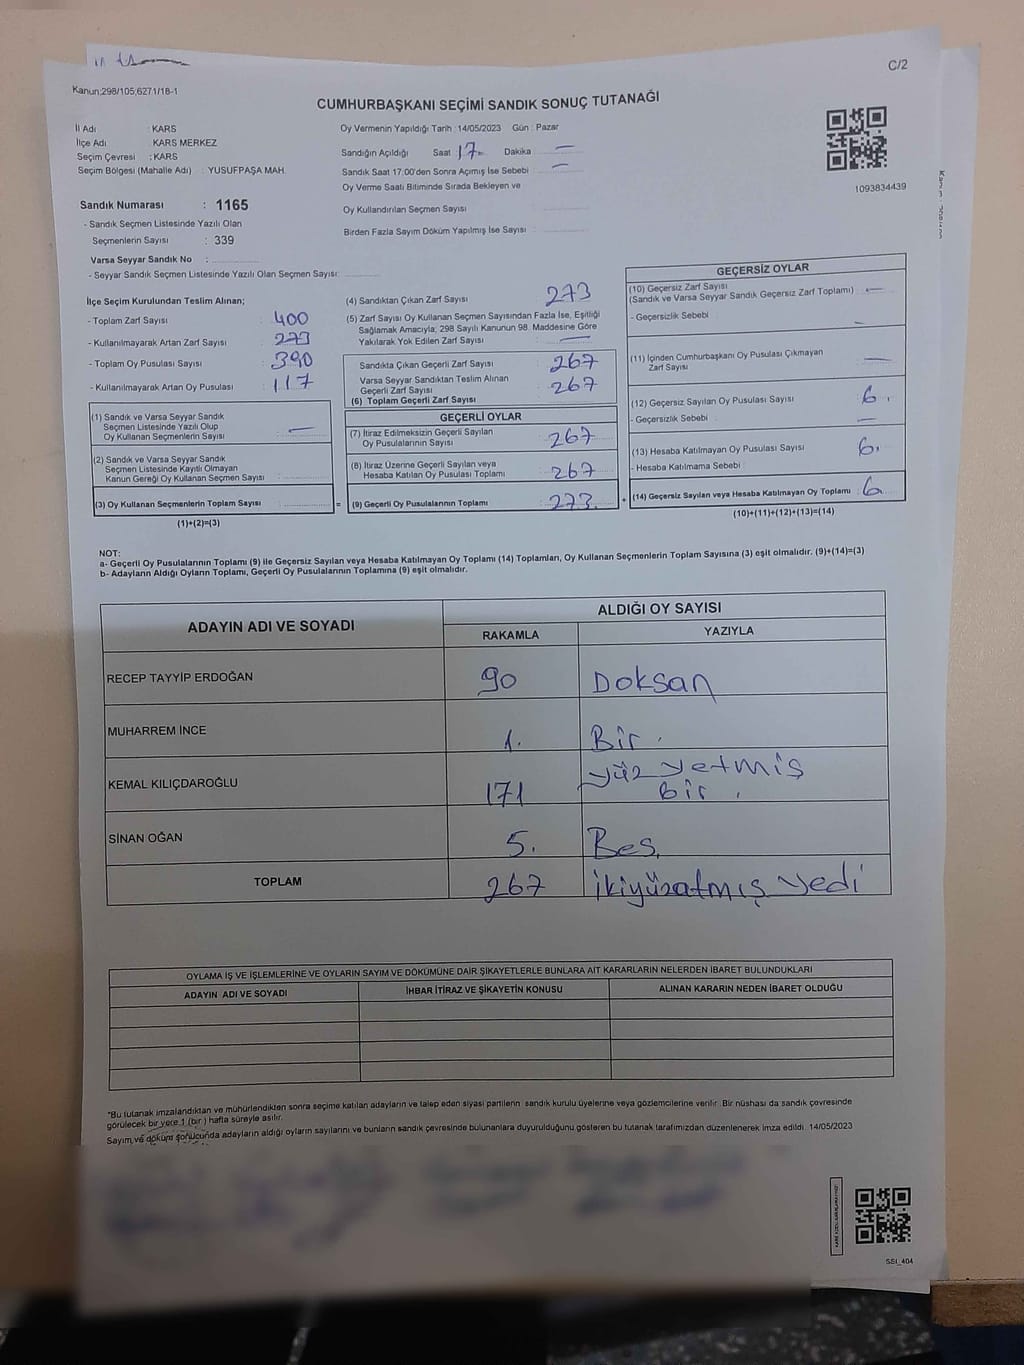 C/2
Kanun:298/105,6271/18-1
CUMHURBAŞKANI SEÇİMİ SANDIK SONUÇ TUTANAĞI
İl Adı : KARS
İlçe Adı : KARS MERKEZ
Seçim Çevresi : KARS
Seçim Bölgesi (Mahalle Adı) : YUSUFPAŞA MAH.
Oy Vermenin Yapıldığı Tarih : 14/05/2023 Gün : Pazar
Sandığın Açıldığı Saat 17 Dakika —
Sandık Saat 17:00'den Sonra Açmış İse Sebebi : —
Oy Verme Saati Bitiminde Sırada Bekleyen ve
Oy Kullandırılan Seçmen Sayısı
Birden Fazla Sayım Döküm Yapılmış İse Sayısı :
1093834439
Sandık Numarası : 1165
- Sandık Seçmen Listesinde Yazılı Olan
Seçmenlerin Sayısı : 339
Varsa Seyyar Sandık No :
- Seyyar Sandık Seçmen Listesinde Yazılı Olan Seçmen Sayısı:
İlçe Seçim Kurulundan Teslim Alınan;
- Toplam Zarf Sayısı : 400
- Kullanılmayarak Artan Zarf Sayısı : 273
- Toplam Oy Pusulası Sayısı : 390
- Kullanılmayarak Artan Oy Pusulası : 117
(1) Sandık ve Varsa Seyyar Sandık
Seçmen Listesinde Yazılı Olup
Oy Kullanan Seçmenlerin Sayısı : —
(2) Sandık ve Varsa Seyyar Sandık
Seçmen Listesinde Kayıtlı Olmayan
Kanun Gereği Oy Kullanan Seçmen Sayısı :
(3) Oy Kullanan Seçmenlerin Toplam Sayısı
(1)+(2)=(3)
(4) Sandıktan Çıkan Zarf Sayısı : 273
(5) Zarf Sayısı Oy Kullanan Seçmen Sayısından Fazla İse, Eşitliği
Sağlamak Amacıyla; 298 Sayılı Kanunun 98. Maddesine Göre
Yakılarak Yok Edilen Zarf Sayısı : —
Sandıkta Çıkan Geçerli Zarf Sayısı : 267
Varsa Seyyar Sandıktan Teslim Alınan
Geçerli Zarf Sayısı : 267
(6) Toplam Geçerli Zarf Sayısı
GEÇERLİ OYLAR
(7) İtiraz Edilmeksizin Geçerli Sayılan
Oy Pusulalarının Sayısı : 267
(8) İtiraz Üzerine Geçerli Sayılan veya
Hesaba Katılan Oy Pusulası Toplamı : 267
= (9) Geçerli Oy Pusulalarının Toplamı : 273.
GEÇERSİZ OYLAR
(10) Geçersiz Zarf Sayısı
(Sandık ve Varsa Seyyar Sandık Geçersiz Zarf Toplamı) : —
- Geçersizlik Sebebi : —
(11) İçinden Cumhurbaşkanı Oy Pusulası Çıkmayan
Zarf Sayısı : —
(12) Geçersiz Sayılan Oy Pusulası Sayısı : 6.
- Geçersizlik Sebebi : —
(13) Hesaba Katılmayan Oy Pusulası Sayısı : 6.
- Hesaba Katılmama Sebebi :
+ (14) Geçersiz Sayılan veya Hesaba Katılmayan Oy Toplamı : 6
(10)+(11)+(12)+(13)=(14)
NOT:
a- Geçerli Oy Pusulalarının Toplamı (9) ile Geçersiz Sayılan veya Hesaba Katılmayan Oy Toplamı (14) Toplamları, Oy Kullanan Seçmenlerin Toplam Sayısına (3) eşit olmalıdır. (9)+(14)=(3)
b- Adayların Aldığı Oyların Toplamı, Geçerli Oy Pusulalarının Toplamına (9) eşit olmalıdır.
ADAYIN ADI VE SOYADI
ALDIĞI OY SAYISI
RAKAMLA YAZIYLA
RECEP TAYYİP ERDOĞAN 90 Doksan
MUHARREM İNCE 1. Bir.
KEMAL KILIÇDAROĞLU 171 yüz yetmiş
bir.
SİNAN OĞAN 5. Bes.
TOPLAM 267 ikiyüzatmış yedi
OYLAMA İŞ VE İŞLEMLERİNE VE OYLARIN SAYIM VE DÖKÜMÜNE DAİR ŞİKAYETLERLE BUNLARA AİT KARARLARIN NELERDEN İBARET BULUNDUKLARI
ADAYIN ADI VE SOYADI İHBAR İTİRAZ VE ŞİKAYETİN KONUSU ALINAN KARARIN NEDEN İBARET OLDUĞU
*Bu tutanak imzalandıktan ve mühürlendikten sonra seçime katılan adayların ve talep eden siyasi partilerin sandık kurulu üyelerine veya gözlemcilerine verilir. Bir nüshası da sandık çevresinde
görülecek bir yere 1 (bir) hafta süreyle asılır.
Sayım ve döküm sonucunda adayların aldığı oyların sayılarını ve bunların sandık çevresinde bulunanlara duyurulduğunu gösteren bu tutanak tarafımızdan düzenlenerek imza edildi. 14/05/2023
SSI_404